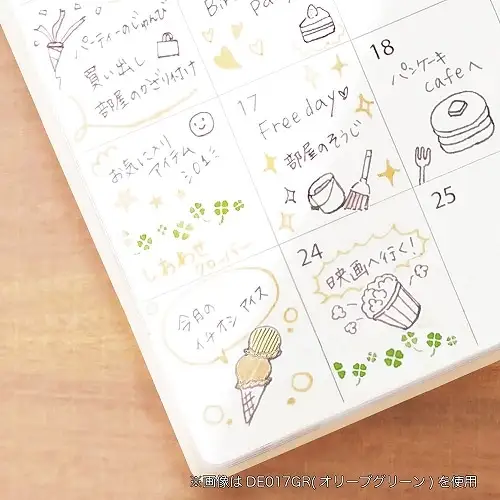 パーティーのじゅんび
買い出し
部屋のかざり付け
17
Free day
部屋のそうじ
18
パンケーキ
cafeへ
お気に入り
アイテム
しあわせ
クローバー
24
映画へ行く!
25
今月の
イチオシ アイス
※画像は DE017GR(オリーブグリーン)を使用